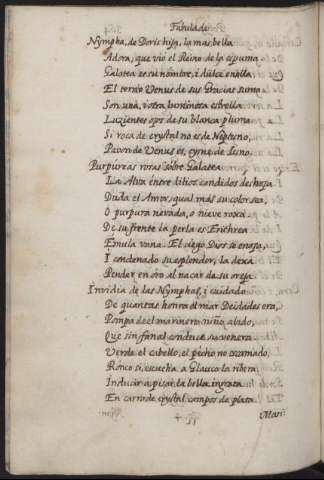 Fabula de
Nympha, de Doris hija, la mas bella
Adora, que vió el Reino de la espuma
Galatea es su nombre, i dulce en ella
El terno Venus de sus Gracias suma
Son una, i otra luminosa estrella
Luzientes ojos de su blanca pluma
Si roca de crystal no es de Neptuno,
Pavon de Venus es, cysne de Juno.
Purpureas rosas sobre Galatea
La Alva entre lilios candidos deshoja
Duda el Amor, qual mas su color sea,
O purpura nevada, o nieve roxa
De su frente la perla es Erithrea
Emula vana. El ciego Dios se enoja,
I condenado su esplendor, la dexa
Pender en oro al nacar de su oreja
Invidia de las Nymphas, i cuidado
De quantas honra el mar Deidades era,
Pompa de el marinero niño alado,
Que sin fanal conduce su venera
Verde el cabello, el pecho no escamado,
Ronco si, escucha a Glauco la ribera
Inducir a pisar la bella ingrata
En carro de crystal campos de plata.
Mari-